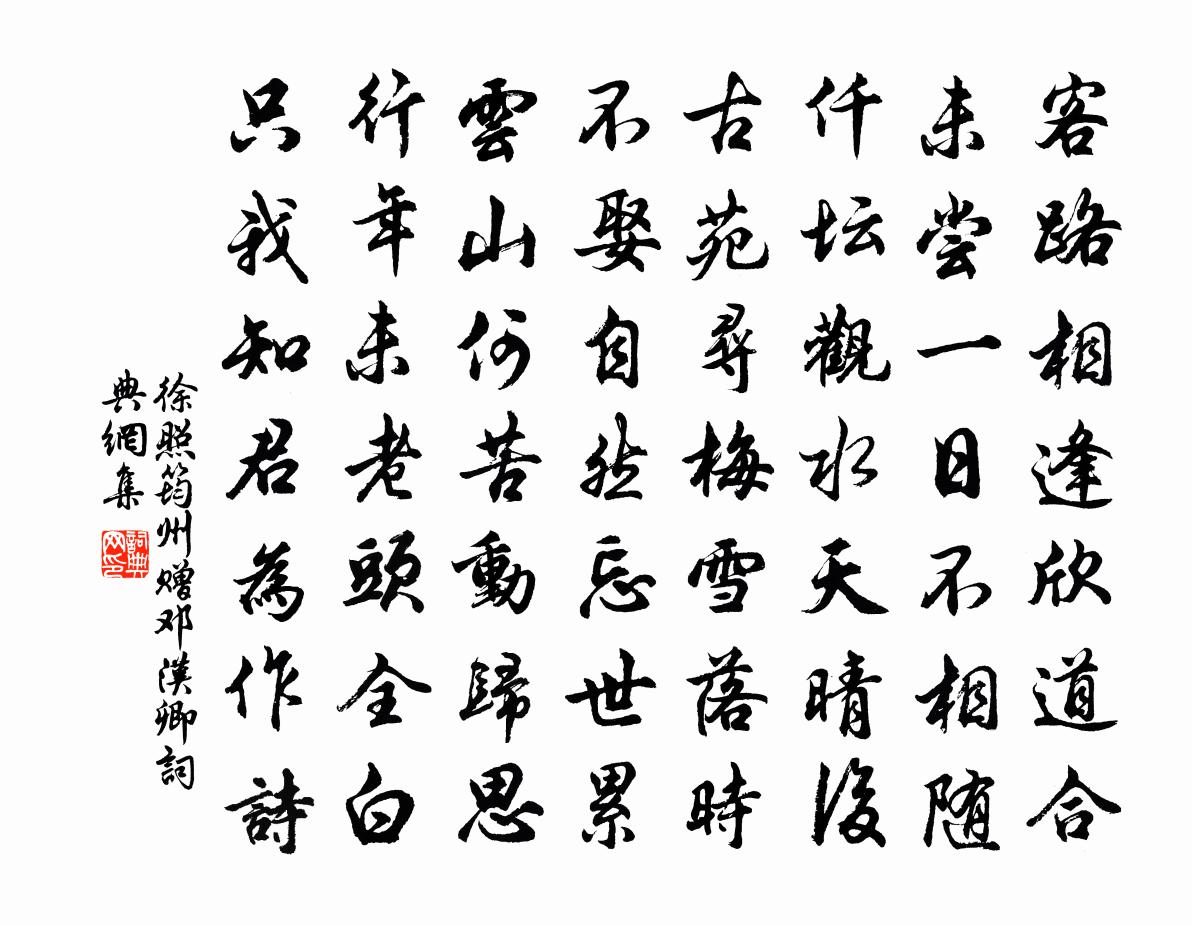 客路相逢欣道合
未尝一日不相随
仟坛觀水天晴後
古苑尋梅雪落時
不娶自然忘世累
雲山何苦動歸思
行年未老頭全白
只我知君為作詩
徐照筠州赠邓漢卿詞
典網集
詞典
网印